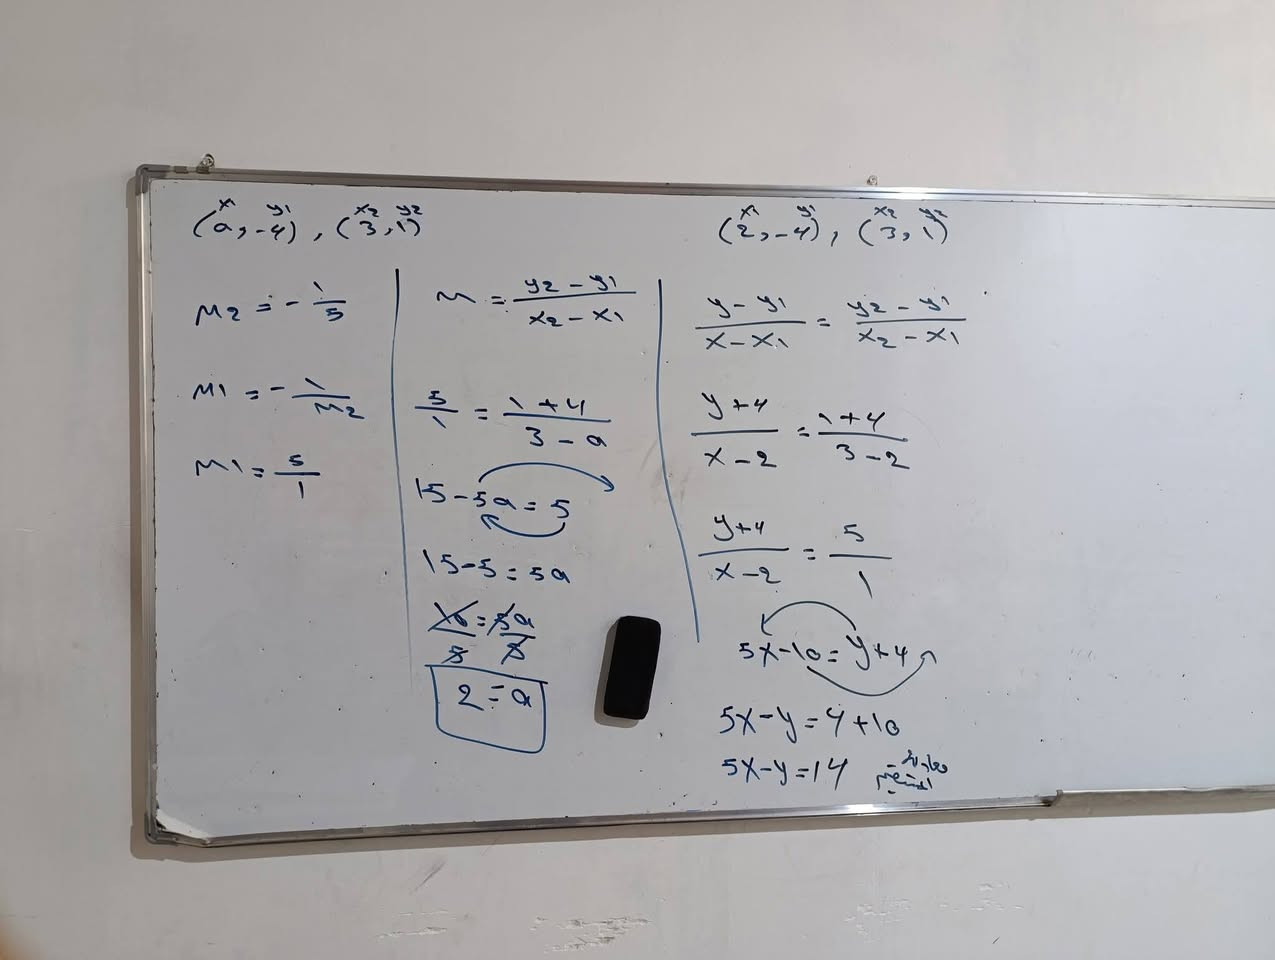 (a, -4), (3, 1)
x1 y1 x2 y2
M2 = - 1/5
M1 = - 1/M2
M1 = 5/1
m = (y2 - y1)/(x2 - x1)
5/1 = (1 + 4)/(3 - a)
15 - 5a = 5
15 - 5 = 5a
10/5 = 5a/5
2 = a
x1 y1 x2 y2
(2, -4), (3, 1)
(y - y1)/(x - x1) = (y2 - y1)/(x2 - x1)
(y + 4)/(x - 2) = (1 + 4)/(3 - 2)
(y + 4)/(x - 2) = 5/1
5x - 10 = y + 4
5x - y = 4 + 10
5x - y = 14 معادلة
المستقيم